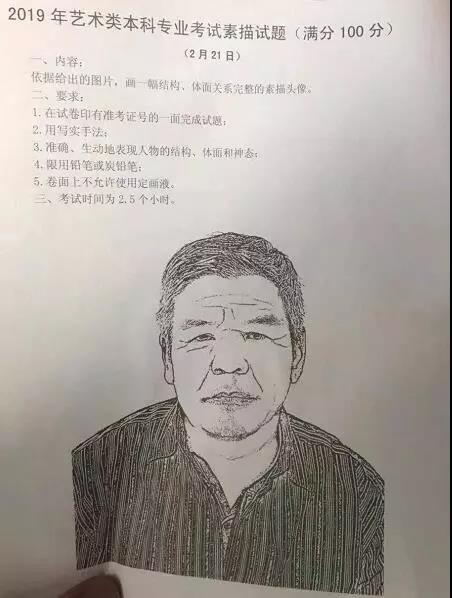 2019 年艺术类本科专业考试素描试题（满分 100 分）
（2 月 21 日）
一、内容：
依据给出的图片，画一幅结构、体面关系完整的素描头像。
二、要求：
1. 在试卷印有准考证号的一面完成试题；
2. 用写实手法；
3. 准确、生动地表现人物的结构、体面和神态；
4. 限用铅笔或炭铅笔；
5. 卷面上不允许使用定画液。
三、考试时间为 2.5 个小时。